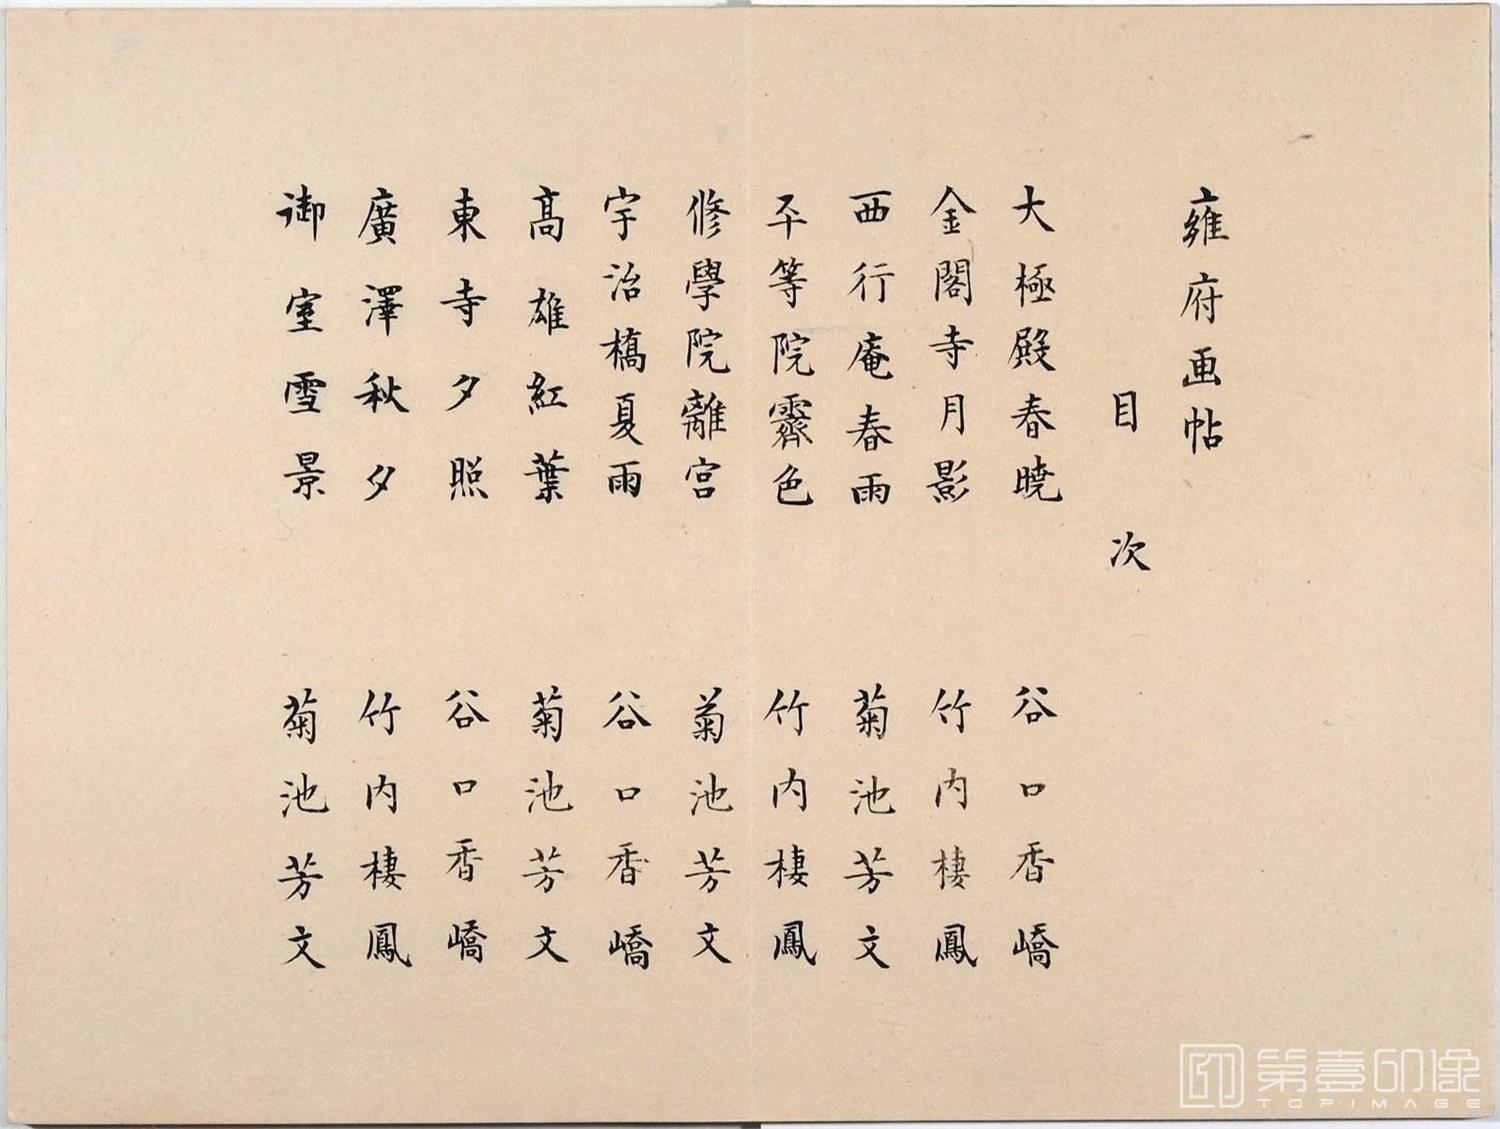 雍府画帖
目次
大極殿春暁 谷口香嶠
金閣寺月影 竹内棲鳳
西行庵春雨 菊池芳文
平等院霽色 竹内棲鳳
修學院離宮 菊池芳文
宇治橋夏雨 谷口香嶠
髙雄紅葉 菊池芳文
東寺夕照 谷口香嶠
廣澤秋夕 竹内棲鳳
御室雪景 菊池芳文
第壹印像
TOPIMAGE